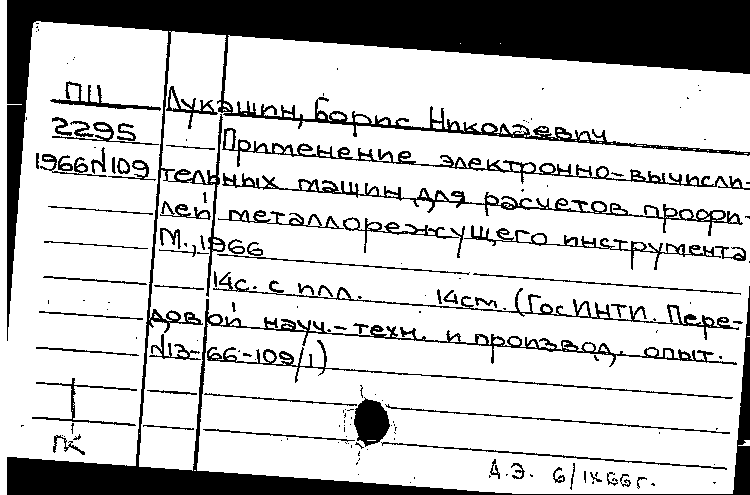 ПП
2295
1966N109
Лукашин, Борис Николаевич
Применение электронно-вычисли-
тельных машин для расчетов профи-
лей металлорежущего инструмента.
М., 1966
14с. с илл. 14см. (ГосИНТИ. Пере-
довой науч.-техн. и производ. опыт.
N13-66-109/1)
ПК
А.Э. 6/IX66г.